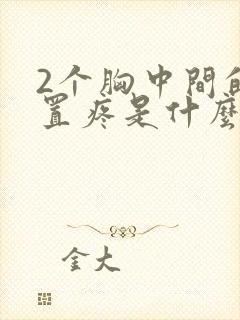 2个胸中間
置疼是什麼
金大